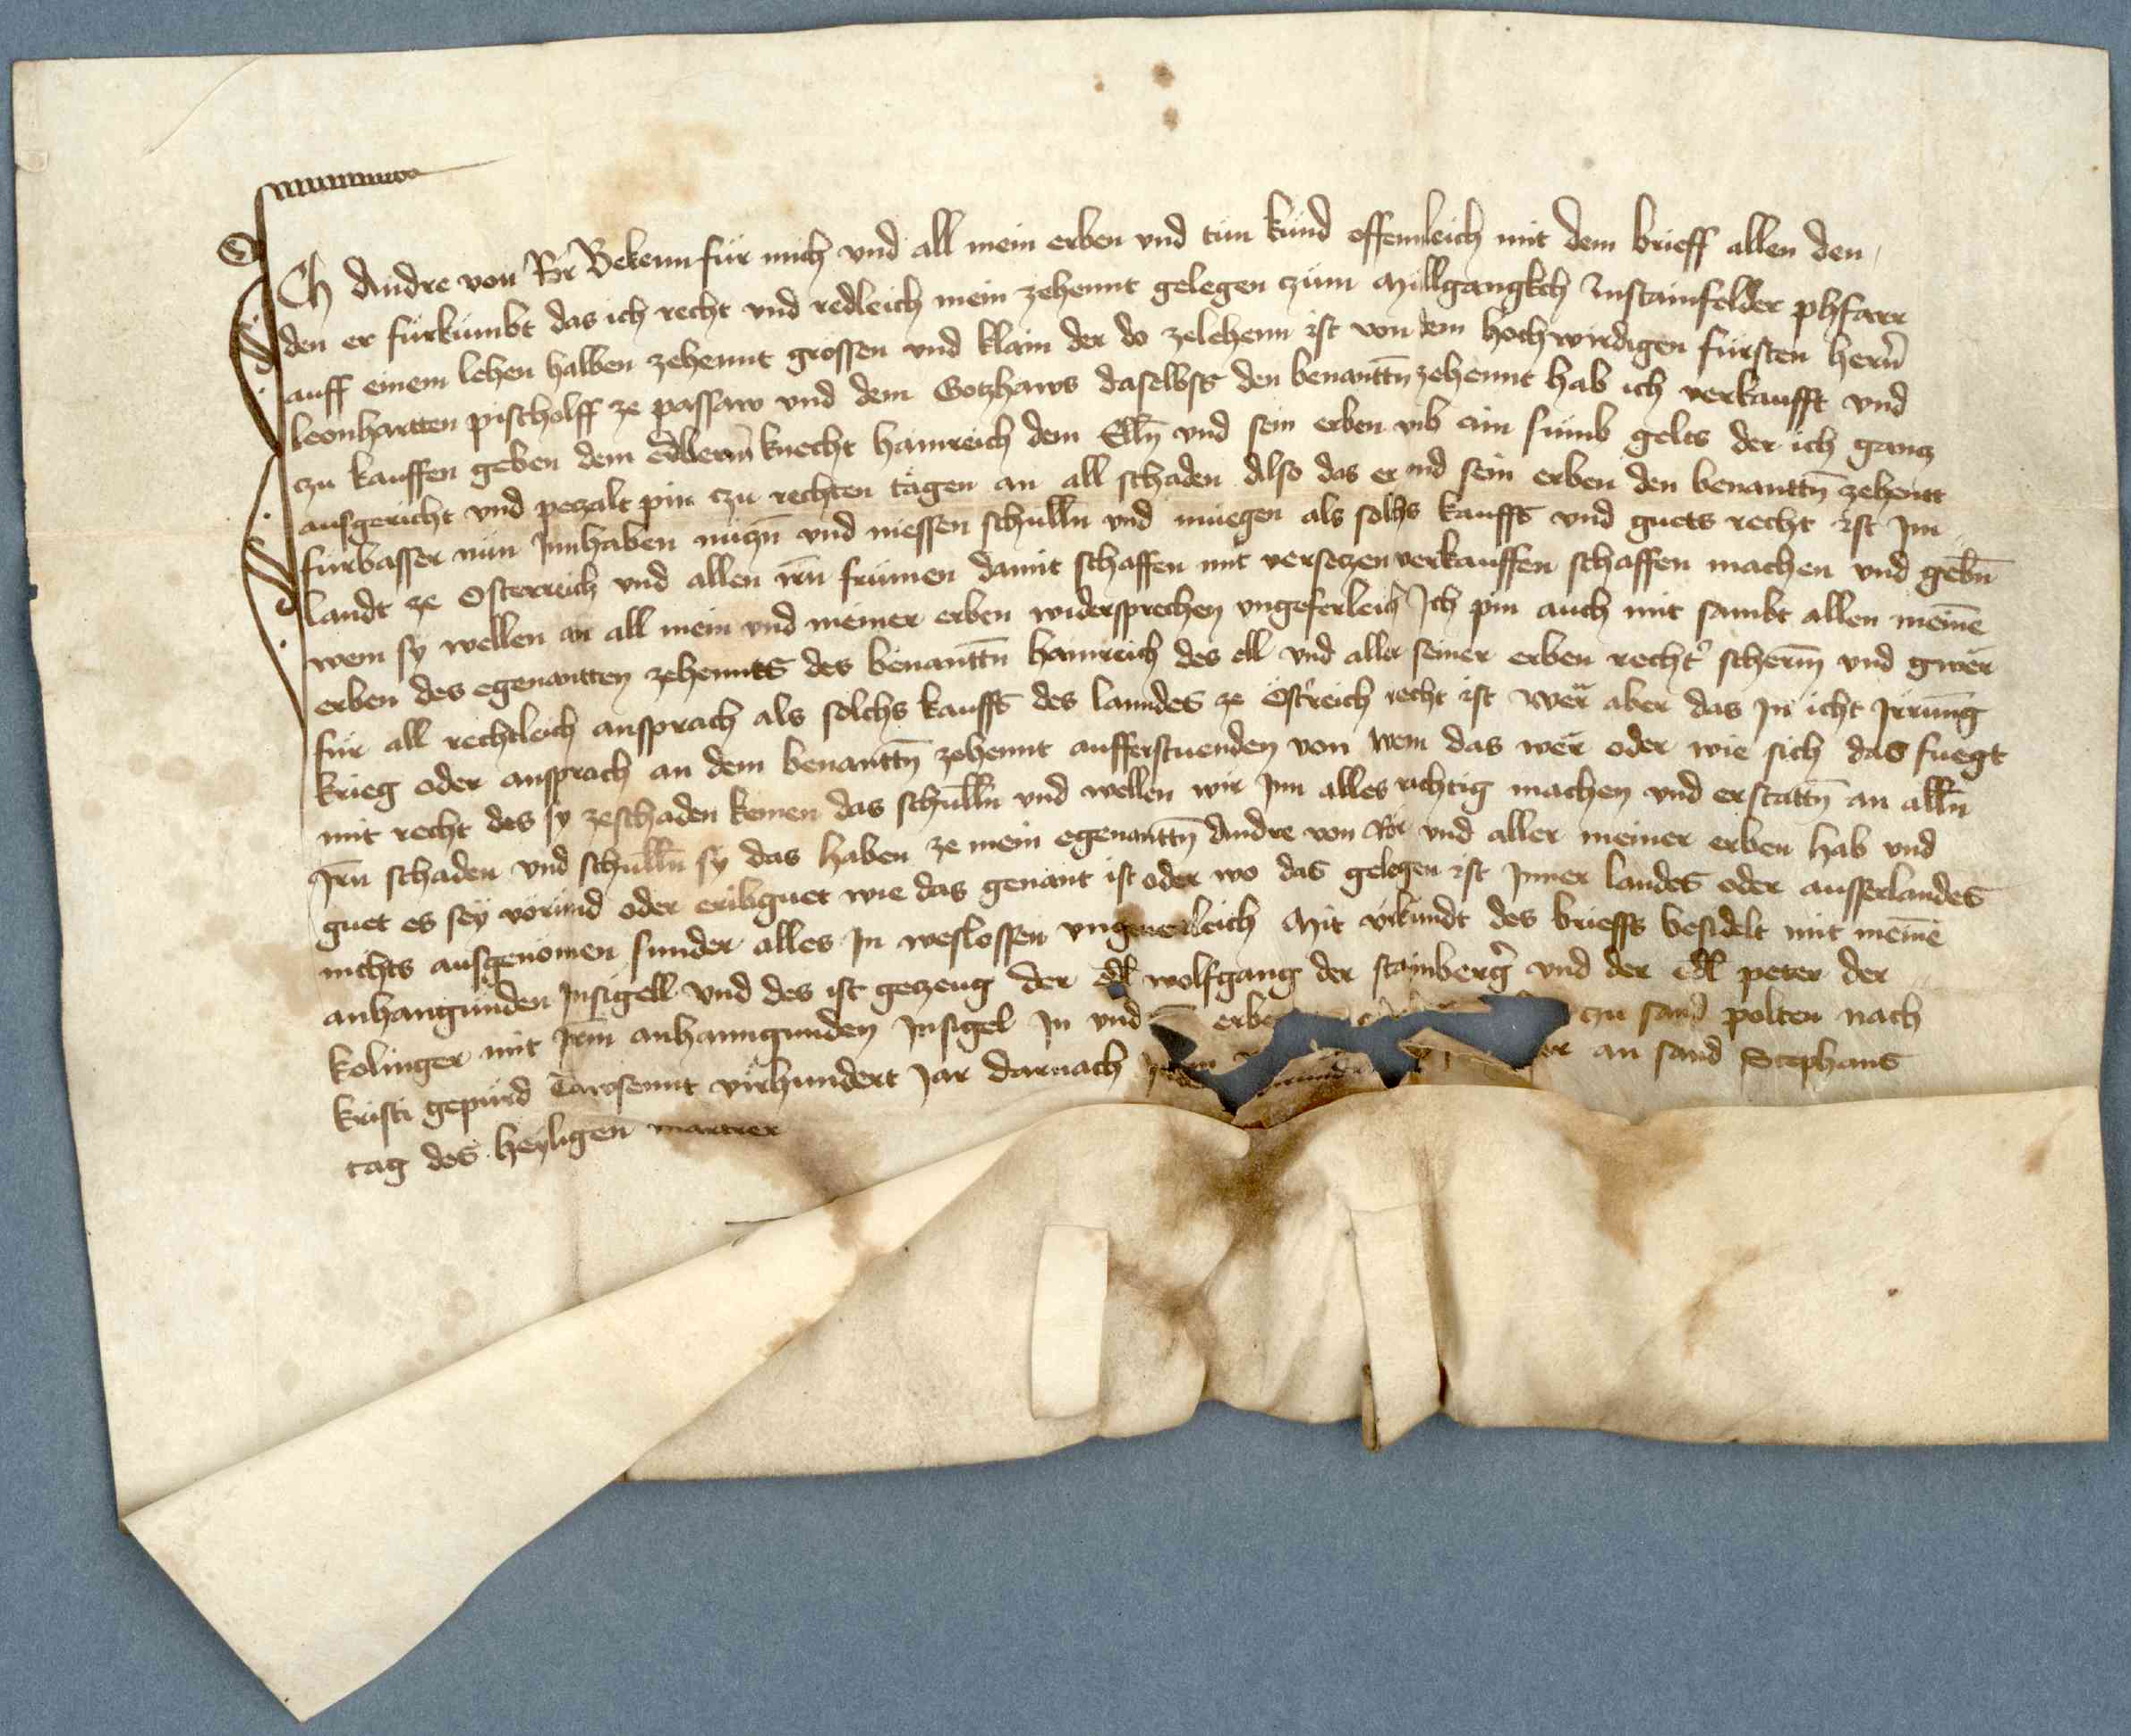 Ich Andre von Rör Bekenn für mich vnd all mein erben vnd tün kund offenleich mit dem brieff allen den
den er fürkümbt das ich recht vnd redleich mein zehennt gelegen czum Millgangkch In stainfelder phfarr
auff einem lehen halben zehennt grossen vnd klain der do zelehenn ist von dem hochwirdigen fürsten herñ
leonhartten pischolff ze passaw vnd dem Gotzhaws daselbst den benanttn̄ zehennt hab ich verkaufft vnd
czu kauffen geben dem erbern knecht hainreich dem Elln̄ vnd sein erben vmb ain sumb gelts der ich gancz
ausgericht vnd peczalt pin czu rechten tägen an all schaden Also das er vnd sein erben den benanttn̄ zehentt
fürbasser nün Innhaben nuczn̄ vnd niessen schulln̄ vnd muegen als solhs kauffs vnd guets recht ist Im
landt ze Osterreich vnd allen irn̄ frümen damit schaffen mit verseczen verkauffen schaffen machen vnd gebn̄
wem sy wellen an all mein vnd meiner erben widersprechen vngeferleich Ich pin auch mit sambt allen meinē
erben des egenantten zehennts des benanttn̄ hainreich des ell vnd aller seiner erben recht scherm vnd gwer
für all rechtleich ansprach als solchs kauffs des lanndes ze Östreich recht ist Wer aber das In icht Irrung
krieg oder ansprach an dem benanttn̄ zehennt aufferstuenden von wem das wer oder wie sich das fuegt
mit recht des sy zeschaden kemen das schulln̄ vnd wellen wir Inn alles richtig machen vnd erstattn̄ an alln̄
Irn̄ schaden vnd schulln̄ sy das haben ze mein egenanttn̄ Andre von Rör vnd aller meiner erben hab vnd
guet es sey voründ oder eribguet wie das genant ist oder wo das gelegen ist Inner landes oder ausserlandes
nichts ausgenomen sunder alles In weslossen vngeuerleich Mit vrkundt des brieffs besidelt mit meinē
anhangünden Insigell vnd des ist geczeug der Edl wolfgang der stainberger vnd der Edl peter der
kolinger mit Irm anhanngunden Insigel In vnd erbe czu sand polten nach
kristi gepürd Tawsennt virhundert Jar darnach Jar an sand Stephans
tag des heyligen martrer